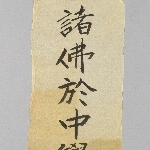 諸佛於中